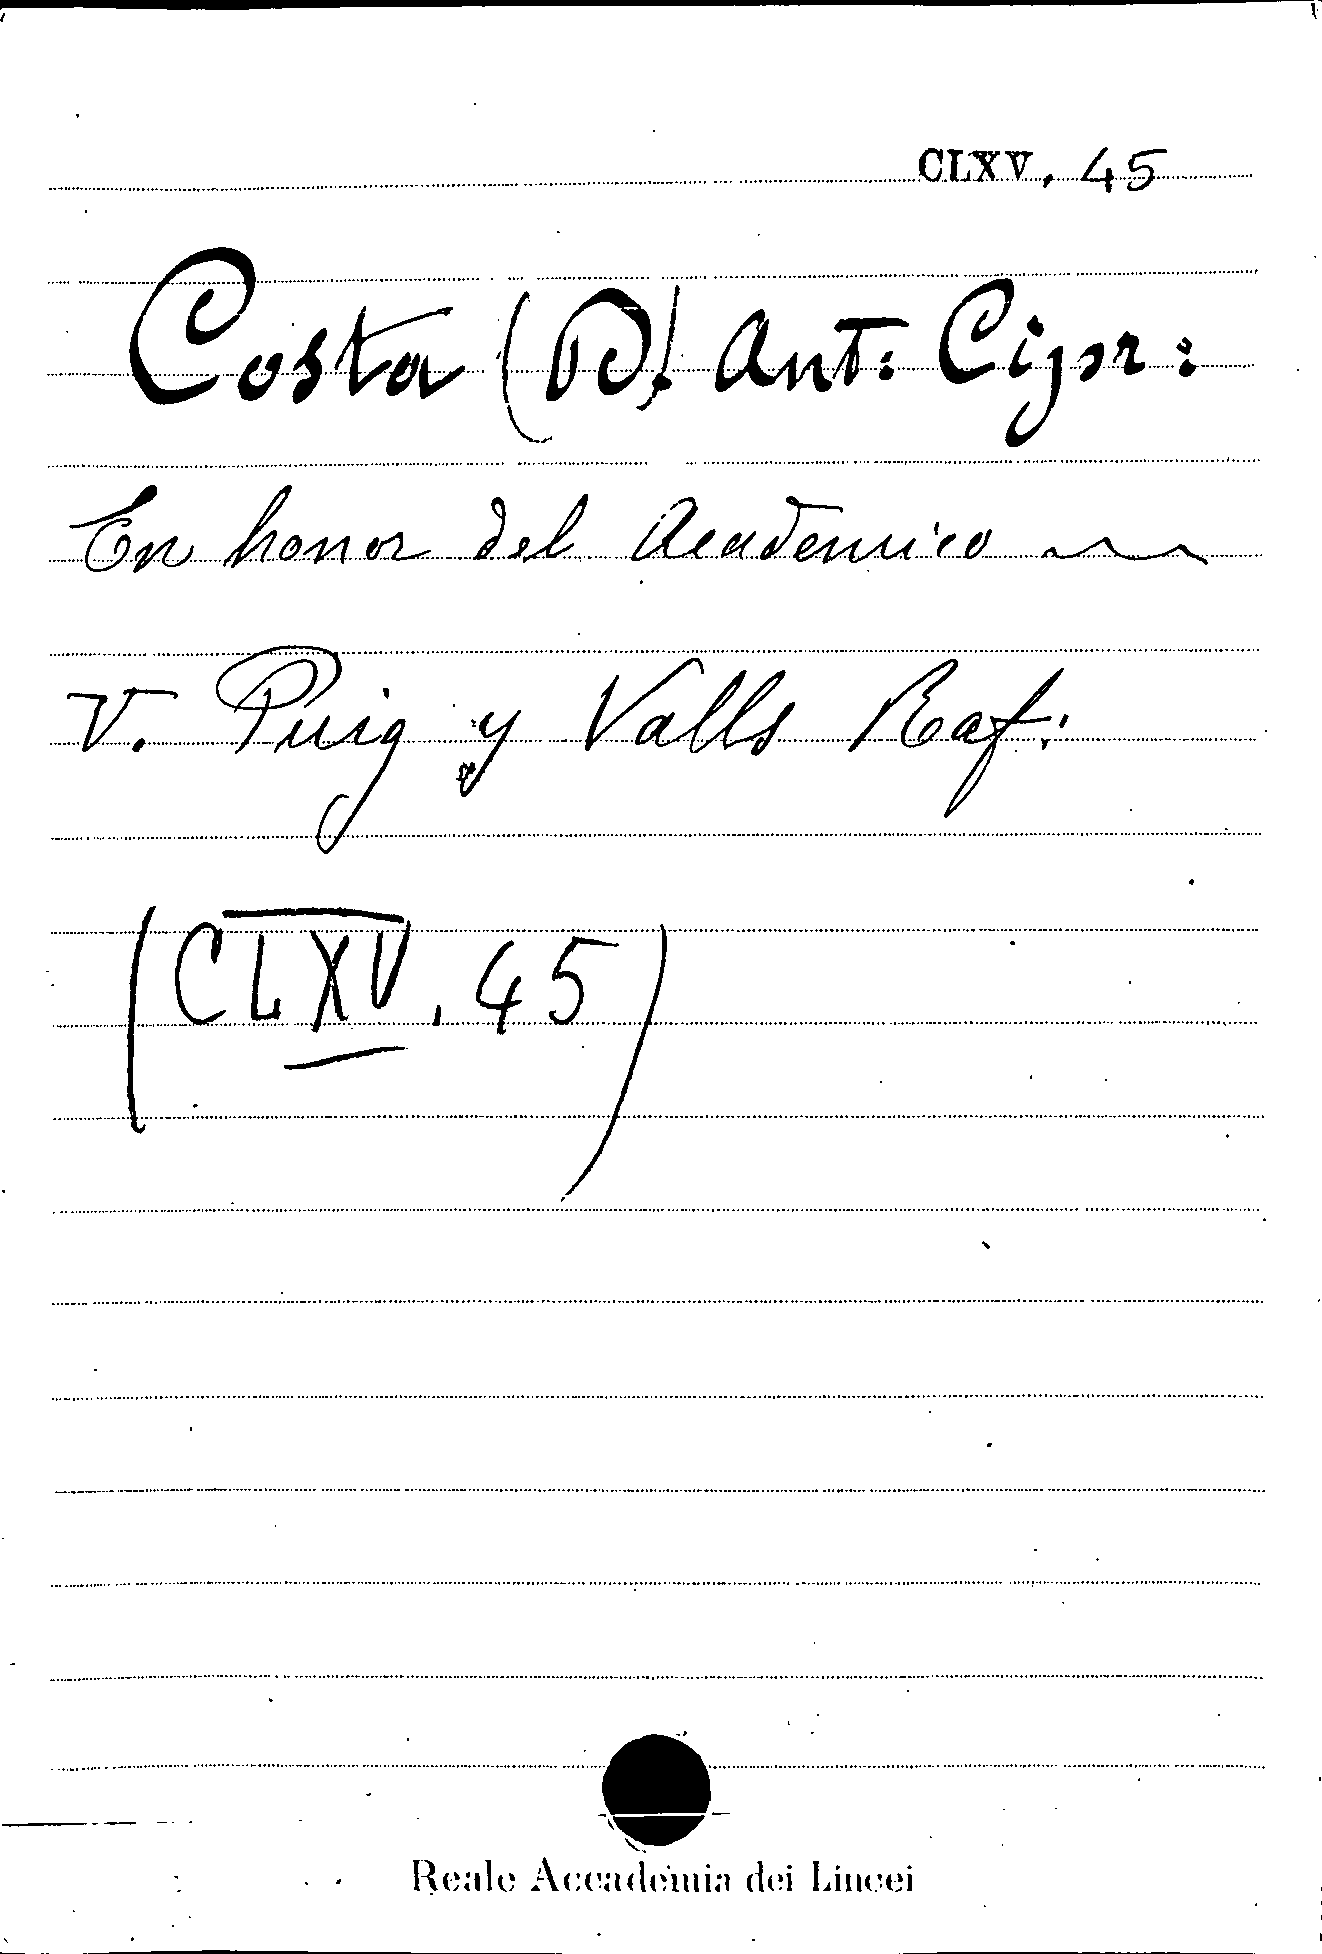 CLXV, 45
Costa (D) Ant: Cipr:
En honor del Academico
V. Puig y Valls Raf:
(CLXV, 45)
Reale Accademia dei Lincei